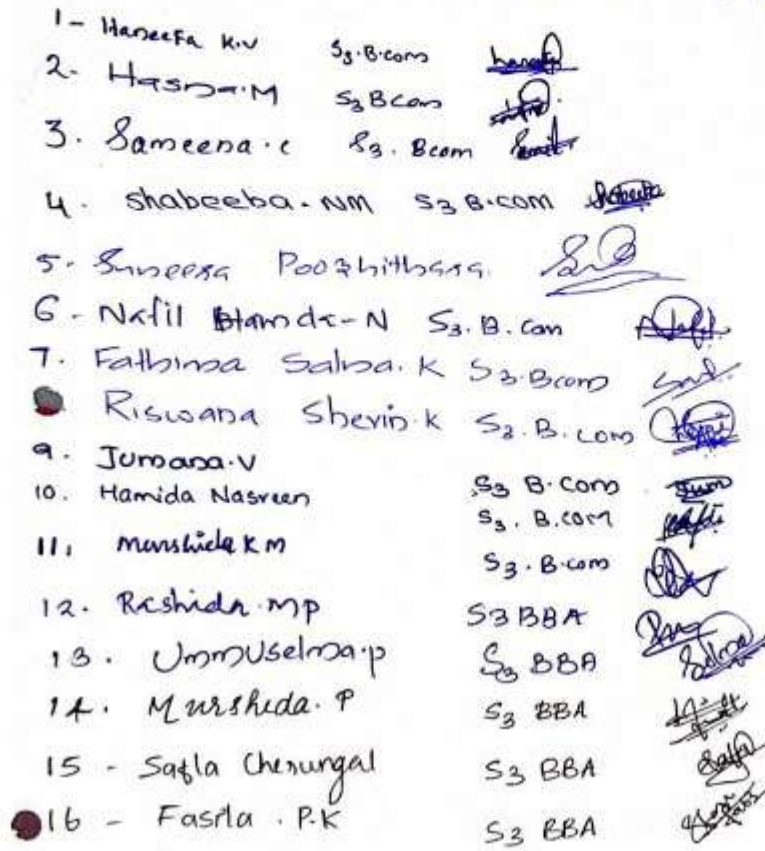 1 - Haneefa K.V S3.B.com
2. Hasna.M S3 BCom
3. Sameena.c S3. Bcom
4. shabeeba.NM S3 B.com
5. Suneera Poozhithara.
6 - Nafil Hamda-N S3.B.com
7. Fathima Salna.K S3.Bcom
Riswana Sherin.k S3.B.com
9. Jumana.V S3 B.com
10. Hamida Nasreen S3.B.com
11. Murshida K M S3.B.com
12. Rashida.mp S3 BBA
13. Ummuselma.p S3 BBA
14. Murshida.P S3 BBA
15 - Safla Cherungal S3 BBA
16 - Fasila.P.K S3 BBA